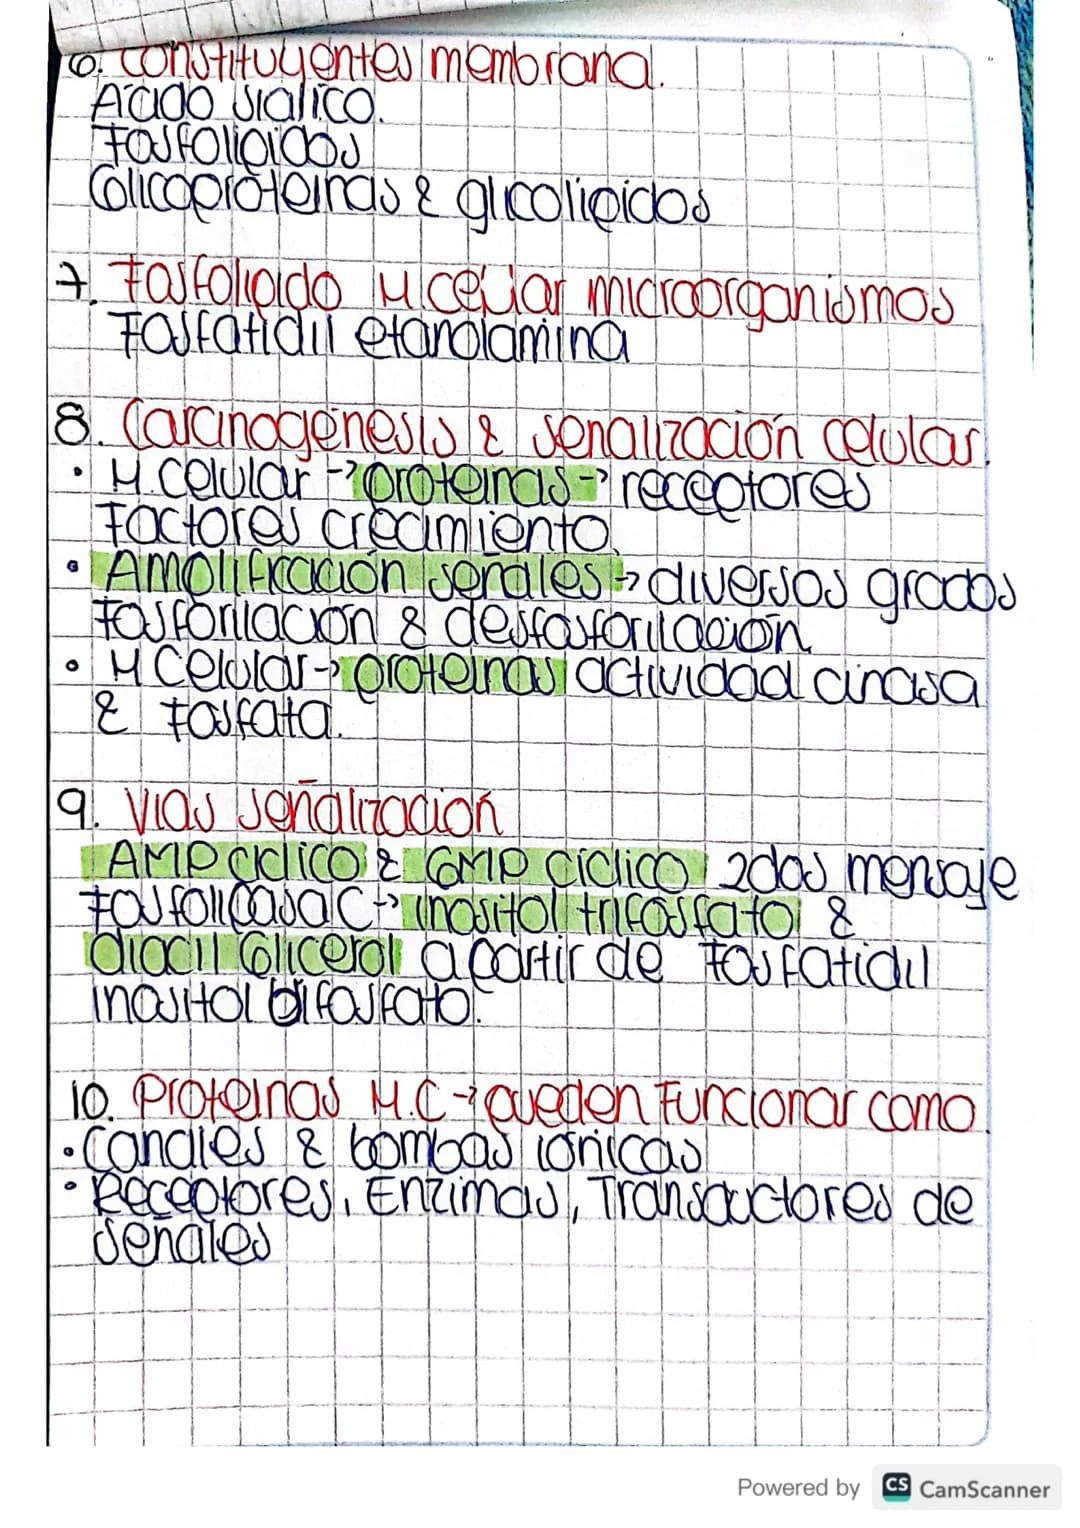 6. Constituyentes membrana.
Ácido siálico.
Fosfolípidos
Glicoproteínas & glicolípidos
7. Fosfolípido M celular microorganismos
Fosfatidil etanolamina
8. Carcinogénesis & señalización celular.
• M. celular → proteínas → receptores
Factores crecimiento.
• Amplificación señales → diversos grados
fosforilación & desfosforilación
• M Celular → proteínas actividad cinasa
& fosfata.
9. Vías señalización
AMP cíclico & GMP cíclico 2dos mensaje
Fosfolipasa C → inositol trifosfato &
diacil Glicerol a partir de fosfatidil
inositol bifosfato.
10. Proteínas M.C → pueden Funcionar como
• Canales & bombas iónicas
• Receptores, Enzimas, Transductores de
señales
Powered by CS CamScanner